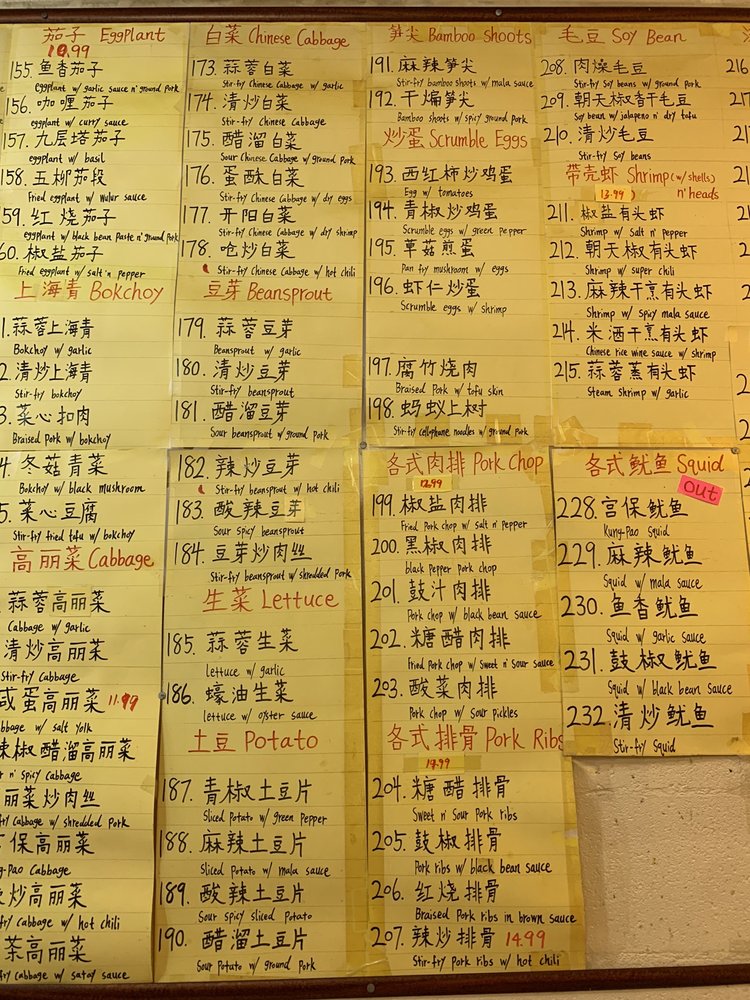 茄子 Eggplant
10.99
155. 鱼香茄子
eggplant w/ garlic sauce n' ground pork
156. 咖喱茄子
eggplant w/ curry sauce
157. 九层塔茄子
eggplant w/ basil
158. 五柳茄段
Fried eggplant w/ wulur sauce
59. 红烧茄子
eggplant w/ black bean paste n' ground pork
60. 椒盐茄子
Fried eggplant w/ salt n pepper
上海青 Bokchoy
1. 蒜蓉上海青
Bokchoy w/ garlic
2. 清炒上海青
Stir-fry bokchoy
3. 菜心扣肉
Braised Pork w/ bokchoy
4. 冬菇青菜
Bokchoy w/ black mushroom
5. 菜心豆腐
Stir-fry fried tofu w/ bokchoy
高丽菜 Cabbage
蒜蓉高丽菜
Cabbage w/ garlic
清炒高丽菜
Stir-fry Cabbage
咸蛋高丽菜 11.99
abbage w/ salt yolk
辣椒醋溜高丽菜
r n' spicy cabbage
丽菜炒肉丝
fry Cabbage w/ shredded Pork
保高丽菜
ng-Pao Cabbage
炒高丽菜
fry Cabbage w/ hot chili
茶高丽菜
fry Cabbage w/ satay sauce
白菜 Chinese Cabbage
173. 蒜蓉白菜
Stir-fry Chinese Cabbage w/ garlic
174. 清炒白菜
Stir-fry Chinese Cabbage
175. 醋溜白菜
Sour Chinese Cabbage w/ ground pork
176. 蛋酥白菜
Stir-fry Chinese Cabbage w/ dry eggs
177. 开阳白菜
Stir-fry Chinese Cabbage w/ dry shrimp
178. 呛炒白菜
Stir-fry Chinese Cabbage w/ hot chili
豆芽 Beansprout
179. 蒜蓉豆芽
Beansprout w/ garlic
180. 清炒豆芽
Stir-fry beansprout
181. 醋溜豆芽
Sour beansprout w/ ground pork
182. 辣炒豆芽
Stir-fry beansprout w/ hot chili
183. 酸辣豆芽
Sour spicy beansprout
184. 豆芽炒肉丝
Stir-fry beansprout w/ shredded pork
生菜 Lettuce
185. 蒜蓉生菜
lettuce w/ garlic
186. 蠔油生菜
lettuce w/ oyster sauce
土豆 Potato
187. 青椒土豆片
Sliced Potato w/ green pepper
188. 麻辣土豆片
Sliced Potato w/ mala sauce
189. 酸辣土豆片
Sour spicy sliced Potato
190. 醋溜土豆片
Sour Potato w/ ground pork
笋尖 Bamboo Shoots
191. 麻辣笋尖
Stir-fry bamboo shoots w/ mala sauce
192. 干煸笋尖
Bamboo shoots w/ spicy ground pork
炒蛋 Scrumble Eggs
193. 西红柿炒鸡蛋
Egg w/ tomatoes
194. 青椒炒鸡蛋
Scrumble eggs w/ green pepper
195. 草菇煎蛋
Pan fry mushroom w/ eggs
196. 虾仁炒蛋
Scrumble eggs w/ shrimp
197. 腐竹烧肉
Braised Pork w/ tofu skin
198. 蚂蚁上树
Stir-fry cellophane noodles w/ ground pork
各式肉排 Pork Chop
12.99
199. 椒盐肉排
Fried Pork chop w/ salt n' pepper
200. 黑椒肉排
black pepper pork chop
201. 鼓汁肉排
Pork chop w/ black bean sauce
202. 糖醋肉排
Fried Pork chop w/ Sweet n' Sour sauce
203. 酸菜肉排
Pork chop w/ sour pickles
各式排骨 Pork Ribs
204. 糖醋排骨
Sweet n' Sour Pork ribs
205. 鼓椒排骨
Pork ribs w/ black bean sauce
206. 红烧排骨
Braised Pork ribs in brown sauce
207. 辣炒排骨 14.99
Stir-fry Pork ribs w/ hot chili
毛豆 Soy Bean
208. 肉燥毛豆
Stir-fry Soy beans w/ ground pork
209. 朝天椒香干毛豆
Soy bean w/ jalapeno n' dry tofu
210. 清炒毛豆
Stir-fry Soy beans
带壳虾 Shrimp (w/ shells)
13.99 ) n' heads
211. 椒盐有头虾
Shrimp w/ salt n' pepper
212. 朝天椒有头虾
Shrimp w/ super chili
213. 麻辣干烹有头虾
Shrimp w/ spicy mala sauce
214. 米酒干烹有头虾
Chinese rice wine sauce w/ shrimp
215. 蒜蓉蒸有头虾
Steam Shrimp w/ garlic
各式鱿鱼 Squid
out
228. 宫保鱿鱼
Kung-Pao Squid
229. 麻辣鱿鱼
Squid w/ mala sauce
230. 鱼香鱿鱼
Squid w/ garlic sauce
231. 鼓椒鱿鱼
Squid w/ black bean sauce
232. 清炒鱿鱼
Stir-fry Squid
216
217